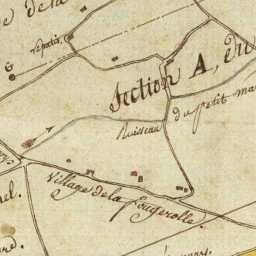 de la
le patis
Section A, du
Ruisseau du petit ma
Village de la fougerolle